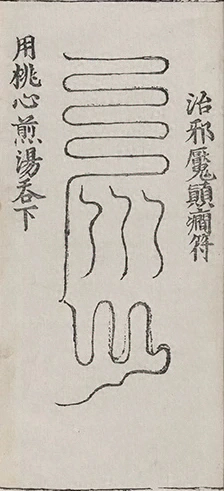 治邪魘顛癇符
用桃心煎湯吞下